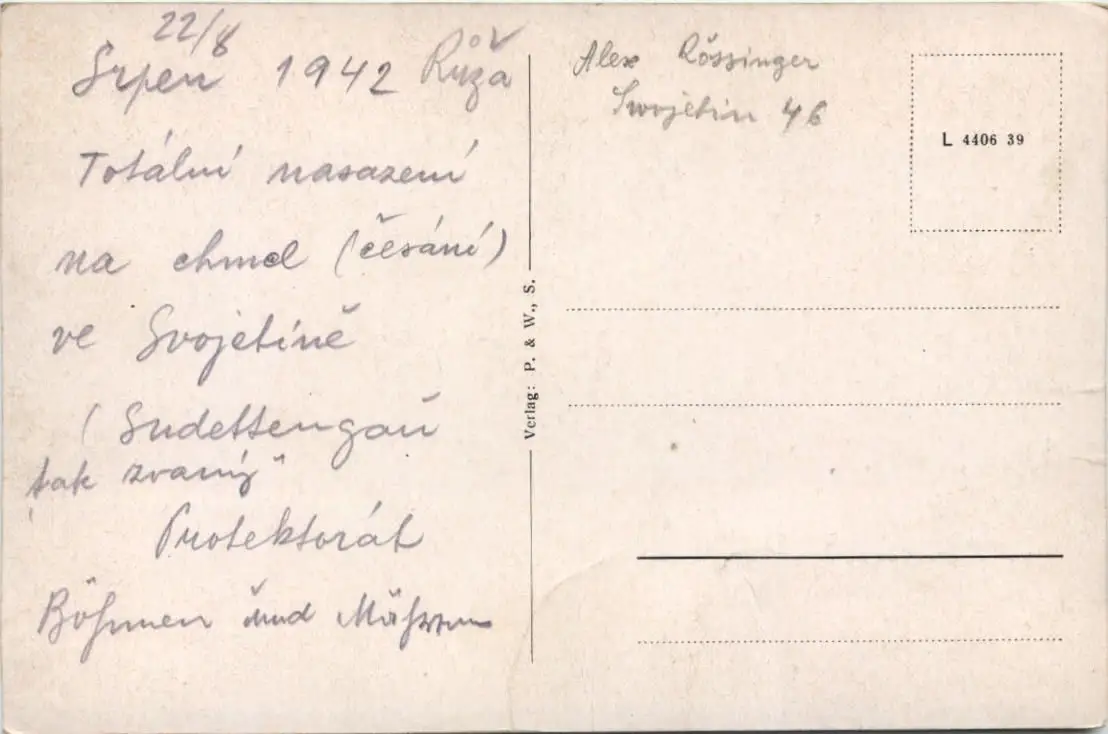 22/8
Srpen 1942 Růža
Totální nasazení
na chmel (česání)
ve Svojetíně
(Sudettengau
tak zvaný"
Protektorát
Böhmen und Mähren
Alex Rössinger
Swojetin 46
L 4406 39
Verlag: P. & W., S.